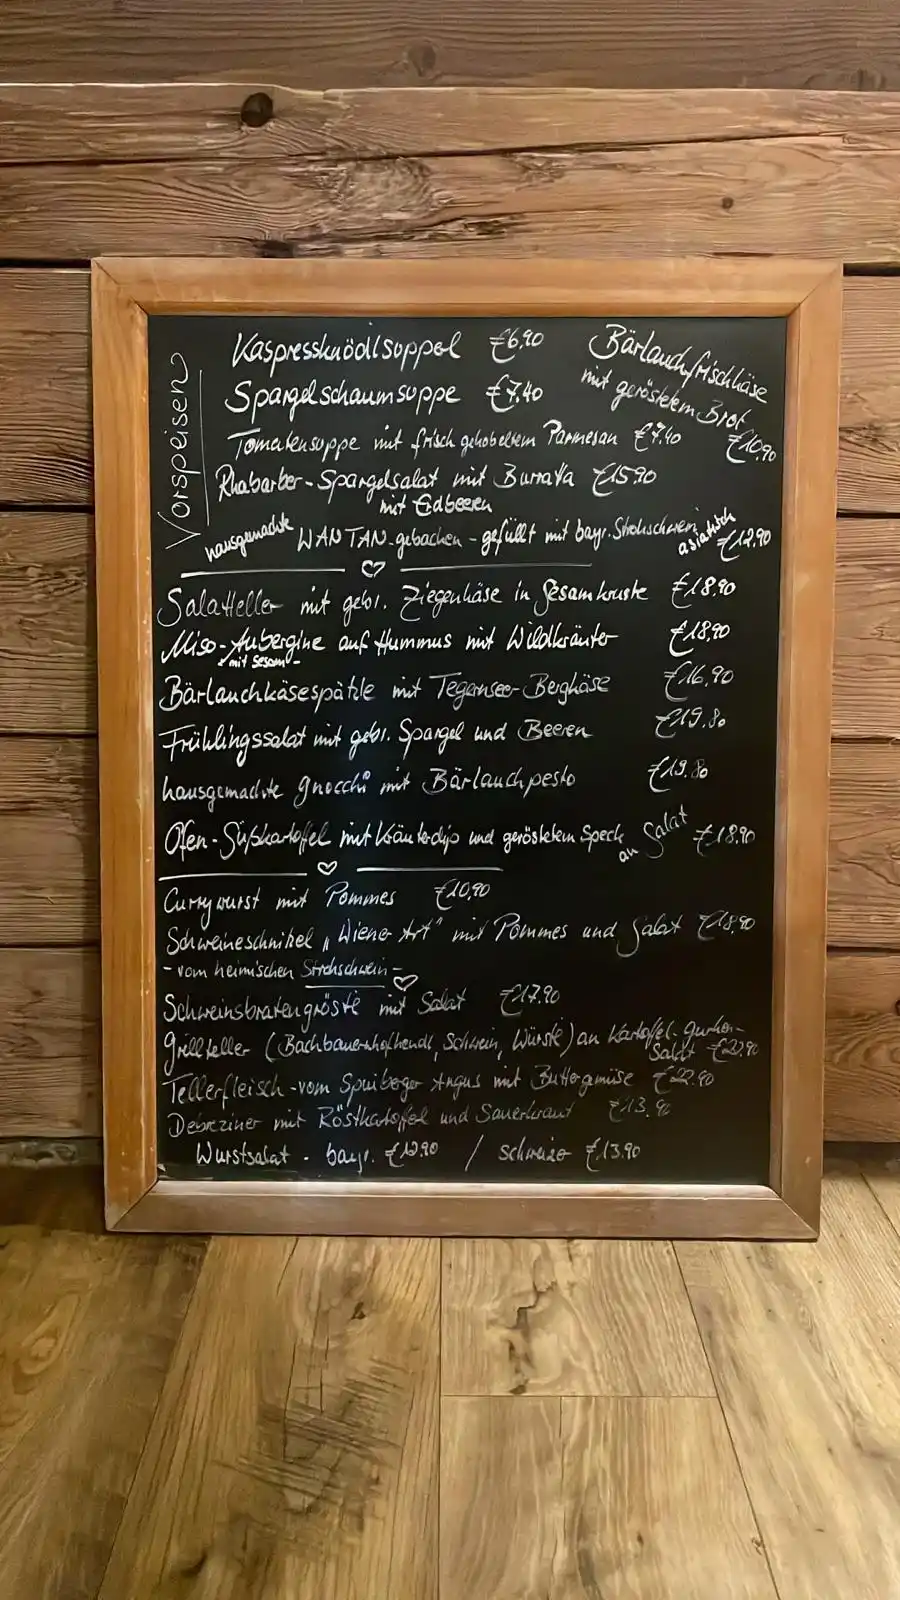 Vorspeisen
Kaspressknödlsupperl €6,90
Spargelschaumsuppe €7,40
Bärlauchfrischkäse
mit geröstetem Brot
€10,90
Tomatensuppe mit frisch gehobeltem Parmesan €7,40
Rhabarber-Spargelsalat mit Burrata €15,90
mit Erdbeeren
hausgemachte WAN TAN-gebacken-gefüllt mit bayr. Strohschwein
asiatisch €12,90
Salatteller mit gebr. Ziegenkäse in Sesamkruste €18,90
Miso-Aubergine auf Hummus mit Wildkräuter €18,90
-mit Sesam-
Bärlauchkäsespätzle mit Tegernseer Bergkäse €16,90
Frühlingssalat mit gebr. Spargel und Beeren €19.80
hausgemachte Gnocchi mit Bärlauchpesto €19.80
Ofen-Süßkartoffel mit Kräuterdip und geröstetem Speck
an Salat €18,90
Currywurst mit Pommes €10,90
Schweineschnitzel „Wiener Art" mit Pommes und Salat €18,90
-vom heimischen Strohschwein-
Schweinsbratengröstl mit Salat €17.90
Grillteller (Bachbauernhofhendl, Schwein, Würstl) an Kartoffel-Gurken-
Salat
Tellerfleisch-vom Angus mit Buttergmüse €22.90
Debreziner mit Röstkartoffel und Sauerkraut
Wurstsalat - bayr. €12.90 / schweizer €13.90